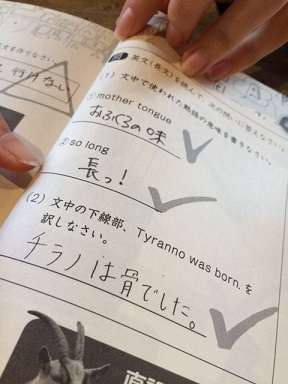 行けない
英文(長文)を読んで、次の問いに答えなさい。
(1) 文中で使われた熟語の意味を書きなさい。
① mother tongue
おふくろの味
② so long
長っ!
(2) 文中の下線部、Tyranno was born. を
訳しなさい。
チラノは骨でした。